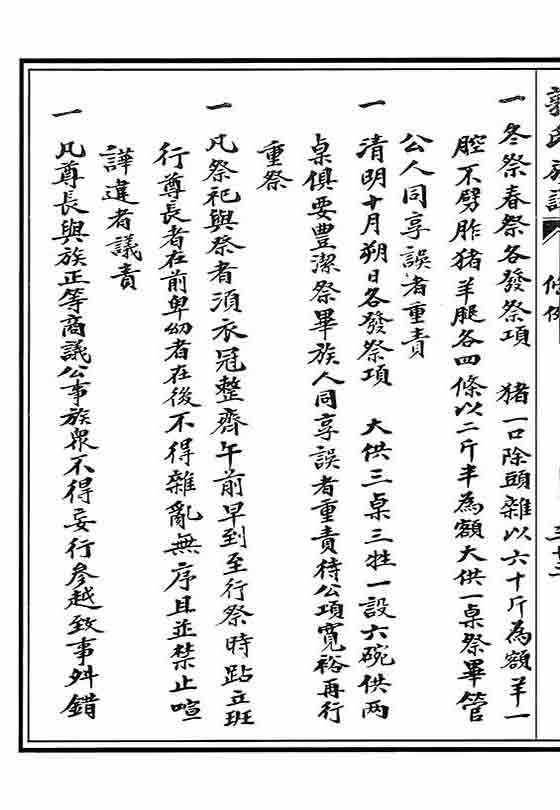 氏族譜 條例
一 冬祭春祭各發祭項 猪一口除頭雜以六十斤為額羊一
腔不劈胙猪羊腿各四條以二斤半為額大供一桌祭畢管
公人同享誤者重責
一 清明十月朔日各發祭項 大供三桌三牲一設六碗供两
桌俱要豊潔祭畢族人同享誤者重責待公項寬裕再行
重祭
一 凡祭祀與祭者須衣冠整齊午前早到至行祭時跕立班
行尊長者在前卑幼者在後不得雜亂無序且並禁止喧
譁違者議責
一 凡尊長與族正等商議公事族衆不得妄行參越致事舛錯